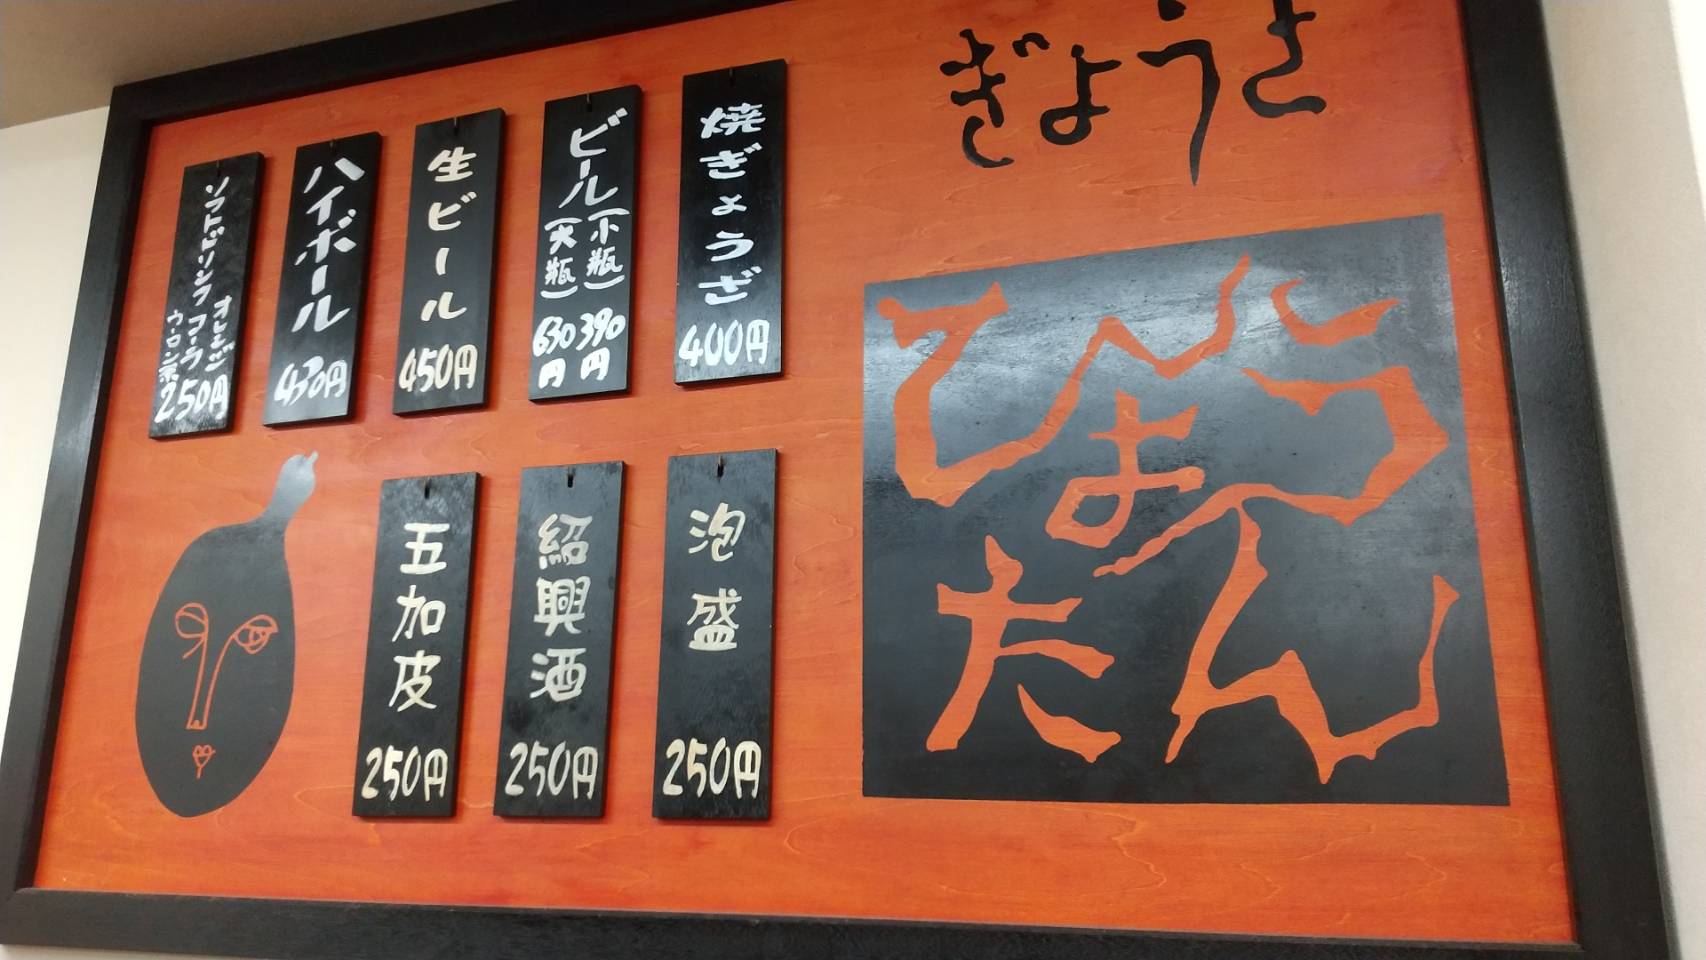 ぎょうざ
ひょうたん
焼ぎょうざ
400円
ビール(小瓶)
390円
(大瓶)
630円
生ビール
450円
ハイボール
430円
ソフトドリンク
オレンジ
コーラ
ウーロン茶
250円
泡盛
250円
紹興酒
250円
五加皮
250円